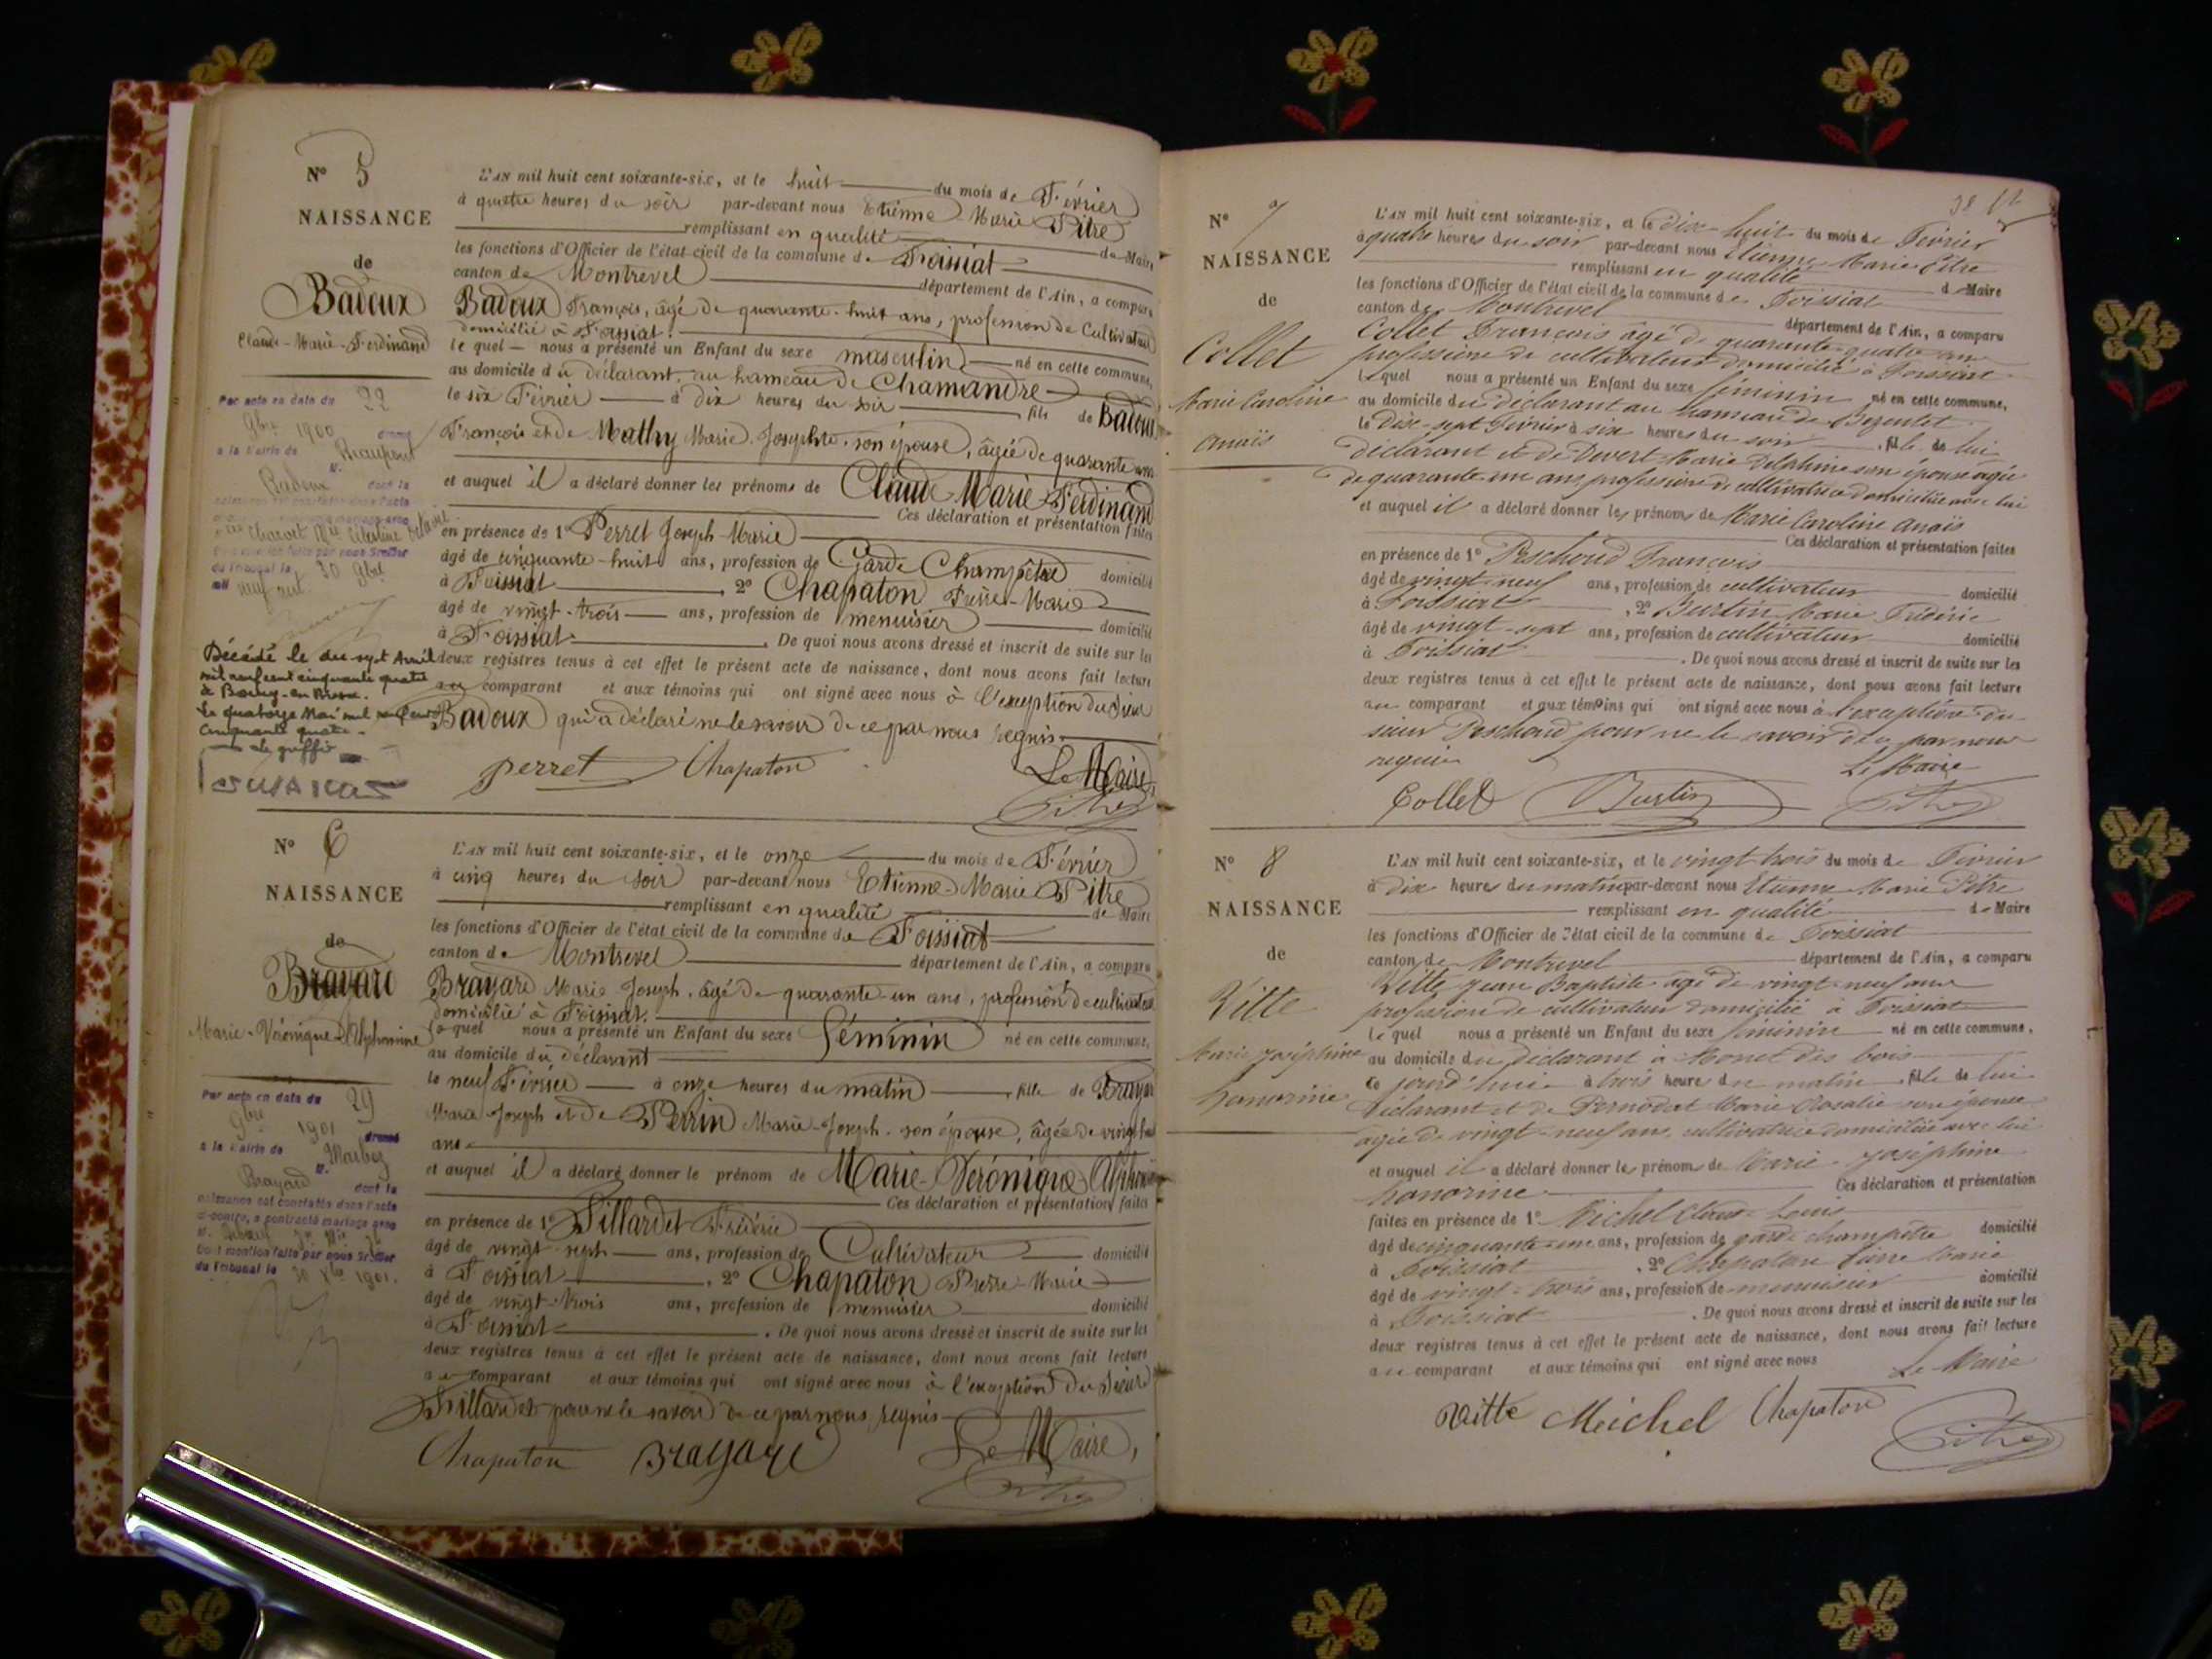 N° 5
NAISSANCE
de
Badoux
Claude-Marie-Ferdinand
Par acte en date du 22
9bre 1900 dressé
a la Mairie de Beaupont
M.
Badoux dont la
naissance est constatée dans l'acte
Dont mention faite par nous Greffier
du Tribunal le 30 9bre
mil neuf cent.
Décédé le dix sept Avril
mil neuf cent cinquante quatre
à Bourg-en-Bresse.
Le quatorze Mai mil neuf cent
cinquante quatre.
Le greffier
L'AN mil huit cent soixante-six, et le huit du mois de Février
à quatre heures du soir par-devant nous Etienne Marie Pitre
remplissant en qualité de Maire
les fonctions d'Officier de l'état civil de la commune de Foissiat
canton de Montrevel département de l'Ain, a comparu
Badoux François, âgé de quarante-huit ans, profession de Cultivateur
domicilié à Foissiat.
le quel nous a présenté un Enfant du sexe masculin né en cette commune,
au domicile du déclarant, au hameau de Chamandre
le six Février à dix heures du soir fils de Badoux
François et de Mathy Marie-Josephte son épouse, âgée de quarante ans
et auquel il a déclaré donner les prénoms de Claude Marie Ferdinand
Ces déclaration et présentation faites
en présence de 1° Perret Joseph-Marie
âgé de cinquante-huit ans, profession de Garde Champêtre domicilié
à Foissiat, 2° Chapaton Pierre-Marie
âgé de vingt-trois ans, profession de menuisier domicilié
à Foissiat. De quoi nous avons dressé et inscrit de suite sur les
deux registres tenus à cet effet le présent acte de naissance, dont nous avons fait lecture
au comparant et aux témoins qui ont signé avec nous à l'exception du Sieur
Badoux qui a déclaré ne le savoir de ce par nous requis.
perret Chapaton Le Maire,
Pitre
N° 6
NAISSANCE
de
Brayard
Marie-Véronique-Alphonsine
Par acte en date du 29
9bre 1901 dressé
a la Mairie de Marboz
M.
Brayard dont la
naissance est constatée dans l'acte
ci-contre, a contracté mariage avec
M.
Dont mention faite par nous Greffier
du Tribunal le 30 Xbre 1901.
L'AN mil huit cent soixante-six, et le onze du mois de Février
à cinq heures du soir par-devant nous Etienne-Marie Pitre
remplissant en qualité de Maire
les fonctions d'Officier de l'état civil de la commune de Foissiat
canton de Montrevel département de l'Ain, a comparu
Brayard Marie-Joseph, âgé de quarante-un ans, profession de cultivateur
domicilié à Foissiat.
le quel nous a présenté un Enfant du sexe féminin né en cette commune,
au domicile du déclarant
le neuf Février à onze heures du matin fille de Brayard
Marie-Joseph et de Perrin Marie-Joseph, son épouse, âgée de vingt huit
ans
et auquel il a déclaré donner le prénom de Marie-Véronique-Alphonsine
Ces déclaration et présentation faites
en présence de 1° Sillardet Frédéric
âgé de vingt-sept ans, profession de Cultivateur domicilié
à Foissiat, 2° Chapaton Pierre-Marie
âgé de vingt-trois ans, profession de menuisier domicilié
à Foissiat. De quoi nous avons dressé et inscrit de suite sur les
deux registres tenus à cet effet le présent acte de naissance, dont nous avons fait lecture
au comparant et aux témoins qui ont signé avec nous à l'exception du Sieur
Sillardet pour ne le savoir de ce par nous requis
Chapaton Brayard Le Maire,
Pitre
38
N° 7
NAISSANCE
de
Collet
Marie Caroline
Anaïs
L'AN mil huit cent soixante-six, et le dix-huit du mois de Février
à quatre heures du soir par-devant nous Etienne Marie Pitre
remplissant en qualité de Maire
les fonctions d'Officier de l'état civil de la commune de Foissiat
canton de Montrevel département de l'Ain, a comparu
Collet François âgé de quarante-quatre ans
profession de cultivateur domicilié à Foissiat
le quel nous a présenté un Enfant du sexe féminin né en cette commune,
au domicile du déclarant au hameau de Bezentet
le Dix-sept Février à six heures du soir, fille de lui
déclarant et de Devert Marie Delphine son épouse âgée
de quarante un ans, profession de cultivatrice domiciliée avec lui
et auquel il a déclaré donner les prénoms de Marie Caroline Anaïs
Ces déclaration et présentation faites
en présence de 1° Peschoud François
âgé de vingt-neuf ans, profession de cultivateur domicilié
à Foissiat, 2° Burtin Marie Frédéric
âgé de vingt-sept ans, profession de cultivateur domicilié
à Foissiat. De quoi nous avons dressé et inscrit de suite sur les
deux registres tenus à cet effet le présent acte de naissance, dont nous avons fait lecture
au comparant et aux témoins qui ont signé avec nous à l'exception du
sieur Peschoud pour ne le savoir de ce par nous
requis
Le Maire
Collet Burtin Pitre
N° 8
NAISSANCE
de
Vitte
Marie Joséphine
honorine
L'AN mil huit cent soixante-six, et le vingt trois du mois de Février
à dix heures du matin par-devant nous Etienne Marie Pitre
remplissant en qualité de Maire
les fonctions d'Officier de l'état civil de la commune de Foissiat
canton de Montrevel département de l'Ain, a comparu
Vitte Jean Baptiste âgé de vingt-neuf ans
profession de cultivateur domicilié à Foissiat
le quel nous a présenté un Enfant du sexe féminin né en cette commune,
au domicile du déclarant à Monet des bois
ce jourd'hui à trois heure du matin, fille de lui
déclarant et de Pernodat Marie Rosalie son épouse
âgée de vingt-neuf ans, cultivatrice domiciliée avec lui
et auquel il a déclaré donner les prénoms de Marie Joséphine
honorine Ces déclaration et présentation
faites en présence de 1° Michel Claude Louis
âgé de cinquante-un ans, profession de garde champêtre domicilié
à Foissiat, 2° Chapaton Pierre Marie
âgé de vingt-trois ans, profession de menuisier domicilié
à Foissiat. De quoi nous avons dressé et inscrit de suite sur les
deux registres tenus à cet effet le présent acte de naissance, dont nous avons fait lecture
au comparant et aux témoins qui ont signé avec nous Le Maire
Vitte Meichel Chapaton Pitre